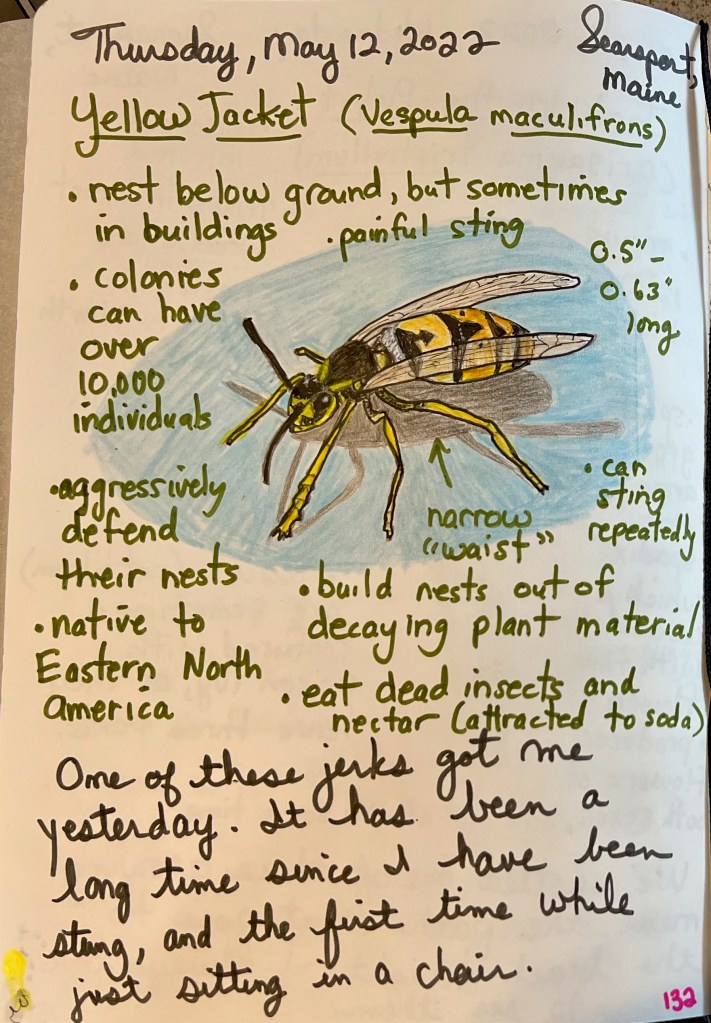 Thursday, May 12, 2022
Searsport,
Maine
Yellow Jacket (Vespula maculifrons)
• nest below ground, but sometimes
in buildings
• painful sting
0.5"-
0.63"
long
• colonies
can have
over
10,000
individuals
• aggressively
defend
their nests
narrow
"waist"
• can
sting
repeatedly
• build nests out of
decaying plant material
• native to
Eastern North
America
• eat dead insects and
nectar (attracted to soda)
One of these jerks got me
yesterday. It has been a
long time since I have been
stung, and the first time while
just sitting in a chair.
132